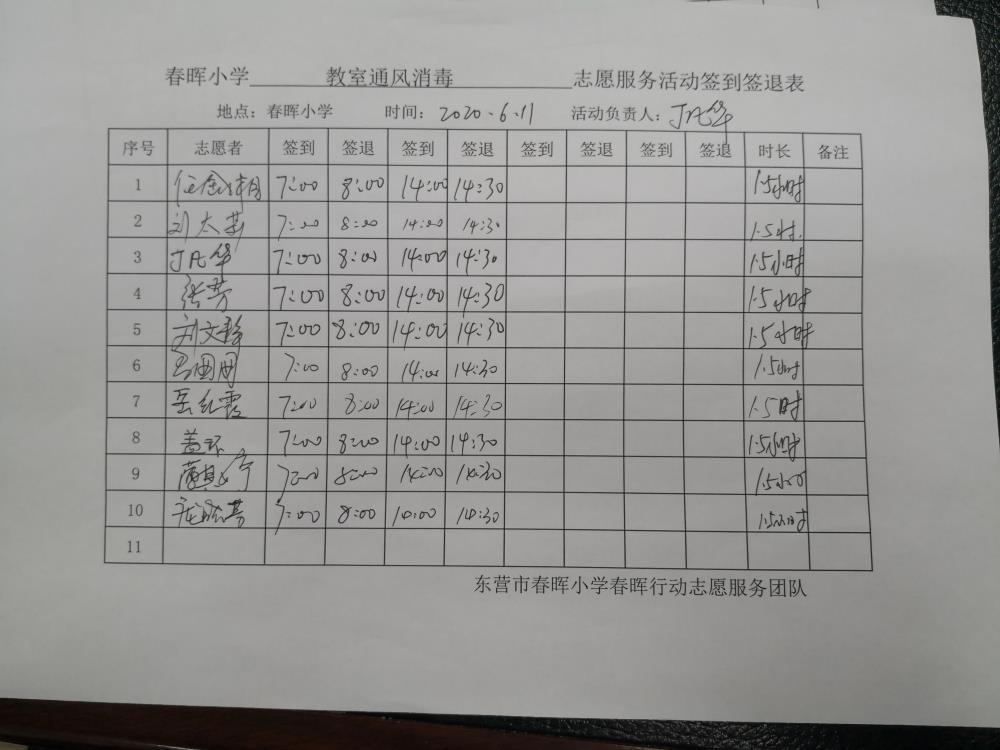 春晖小学 教室通风消毒 志愿服务活动签到签退表
地点：春晖小学 时间：2020.6.11 活动负责人：丁凡华
序号 志愿者 签到 签退 签到 签退 签到 签退 签到 签退 时长 备注
1 7:00 8:00 14:00 14:30 1.5小时
2 刘太莉 7:00 8:00 14:00 14:30 1.5时.
3 丁凡华 7:00 8:00 14:00 14:30 1.5小时
4 张芳 7:00 8:00 14:00 14:30 1.5小时
5 刘文静 7:00 8:00 14:00 14:30 1.5小时
6 7:00 8:00 14:00 14:30 1.5小时
7 岳红霞 7:00 8:00 14:00 14:30 1.5时
8 盖环 7:00 8:00 14:00 14:30 1.5小时
9 7:00 8:00 14:00 14:30
10 7:00 8:00 14:00 14:30 1.5小时
11
东营市春晖小学春晖行动志愿服务团队